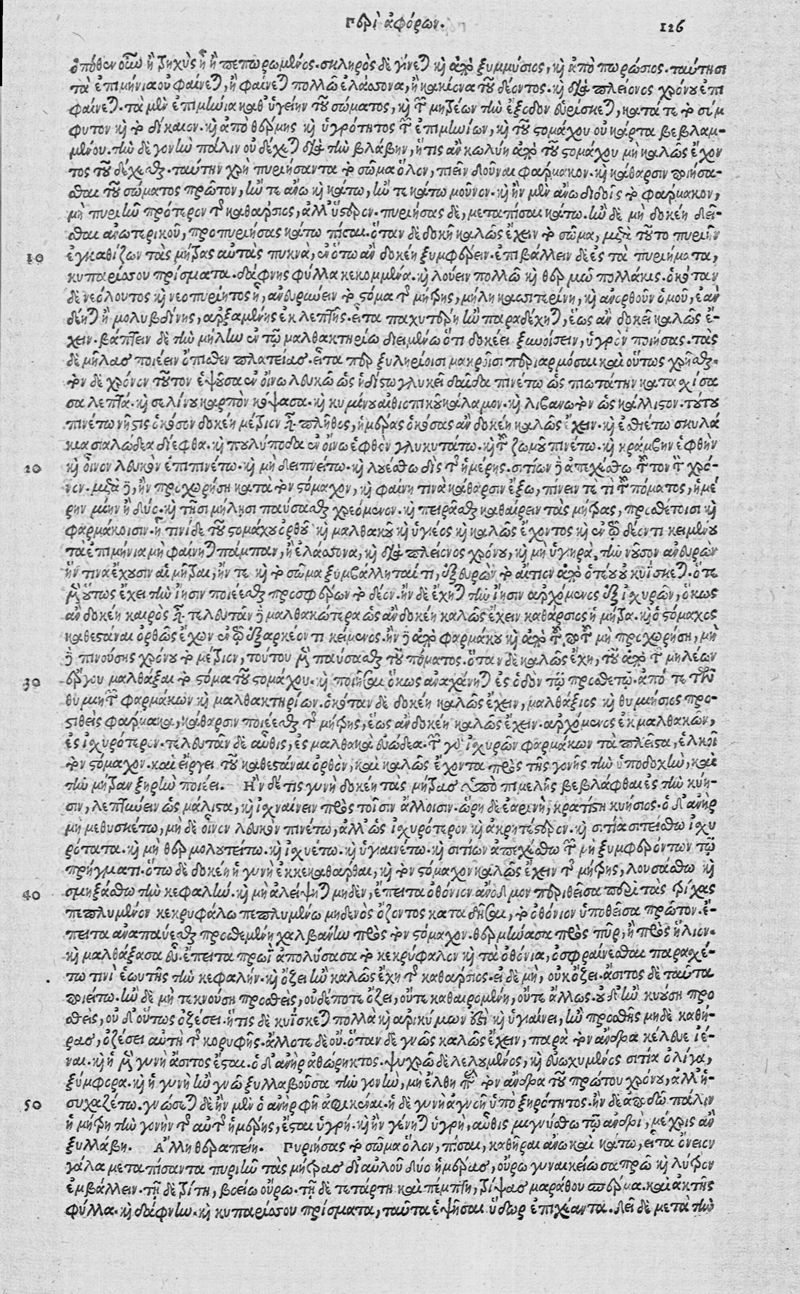 Περὶ ἀφόρων. 126
ὁπόθεν οὖν ἢ ἰσχὺς ᾖ ἢ πεπωρωμένος. σκληρὸς δὲ γίνεται καὶ ἀπὸ ξυμμύσιος, καὶ ἀπὸ πωρώσιος. ταύτῃσι
τὰ ἐπιμήνια οὐ φαίνεται, ἢ φαίνεται πολλῷ ἐλάσσονα, ἢ κακίονα τοῦ δέοντος. καὶ διὰ πλείονος χρόνου ἐπι
φαίνεται. τὰ μὲν ἐπιμήνια καθ' ὑγιείην τοῦ σώματος, καὶ τῶν μητρέων τὴν ἔξοδον εὑρίσκει, κατά τε τὸ σύμ
φυτον καὶ τὸ δίκαιον. καὶ ἀπὸ θέρμης καὶ ὑγρότητος τῶν ἐπιμηνίων, καὶ τοῦ στομάχου οὐ κάρτα βεβλαμ-
μένου. τὴν δὲ γονὴν πάλιν οὐ δέχεται διὰ τὴν βλάβην, ἥτις ἂν κωλύῃ ἀπὸ τοῦ στομάχου μὴ καλῶς ἔχον
τος τοῦ δέχεσθαι. ταύτην χρὴ πυριήσαντα τὸ σῶμα ὅλον, πιεῖν δοῦναι φάρμακον. καὶ κάθαρσιν ποιήσα-
σθαι τοῦ σώματος πρῶτον, ἤν τε ἄνω καὶ κάτω, ἤν τε κάτω μοῦνον. καὶ ἢν μὲν ἄνω διδοῖς τὸ φάρμακον,
μὴ πυριῆν πρότερον τῆς καθάρσιος, ἀλλ' ὕστερον. πυριήσας δὲ, μεταπῖσαι κάτω. ἢν δὲ μὴ δοκέῃ δεῖ-
σθαι ἀνωτερικοῦ, προπυριήσας κάτω πῖσαι. ὅταν δὲ δοκῇ καλῶς ἔχειν τὸ σῶμα, μετὰ τοῦτο πυριῆν
10 ἐγκαθίζων τὰς μήτρας αὐτὰς πυκνὰ, ἐν ὅτῳ ἂν δοκέῃ ξυμφέρειν. ἐπιβάλλειν δὲ ἐς τὰ πυριήματα,
κυπαρίσσου πρίσματα. δάφνης φύλλα κεκομμένα. καὶ λούειν πολλῷ καὶ θερμῷ πολλάκις. ὁκόταν
δὲ νεόλουτος καὶ νεοπυρίητος ᾖ, ἀνευρύνειν τὸ στόμα τῆς μήτρης, μήλῃ κασσιτερίνῃ, καὶ ἀνορθοῦν ὁμοῦ, ἐὰν
δέηται ἢ μολυβδίνης, ἀρξαμένης ἐκ λεπτῆς. εἶτα παχυτέρῃ ἢν παραδέχηται, ἕως ἂν δοκέῃ καλῶς ἔ-
χειν. βάπτειν δὲ τὴν μήλην ἐν τῷ μαλθακτηρίῳ διειμένῳ ὅ τι δοκέει ξυνοίσειν, ὑγρὸν ποιήσας. τὰς
δὲ μήλας ποιέειν ὄπισθεν πλατείας. εἶτα περὶ ξυληρίοισι μακροῖσι περιαρμόσαι καὶ οὕτως χρῆσθαι.
τὸν δὲ χρόνον τοῦτον ἑψοῦσα ἐν οἴνῳ λευκῷ ὡς ἡδίστῳ γλυκεῖ δαΐδα πινέτω ὡς πιοτάτην κατασχίσα
σα λεπτά. καὶ σελίνου καρπὸν κόψασα. καὶ κυμίνου αἰθιοπικοῦ κάλαμον. καὶ λιβανωτὸν ὡς κάλλιστον. τούτου
πινέτω νῆστις ὁκόσον δοκέῃ μέτριον εἶναι πλῆθος, ἡμέρας ὁκόσας ἂν δοκέῃ καλῶς ἔχειν. καὶ ἐσθιέτω σκυλά
κια σιαλώδεα δίεφθα. καὶ πουλύποδα ἐν οἴνῳ ἑφθὸν γλυκυτάτῳ. καὶ τοῦ ζωμοῦ πινέτω. καὶ κράμβην ἑφθὴν
20 καὶ οἶνον λευκὸν ἐπιπινέτω. καὶ μὴ δειπνείτω. καὶ λουέσθω δὶς τῆς ἡμέρης. σιτίων δὲ ἀπεχέσθω τοῦτον τὸν χρό-
νον. μετὰ δὲ, ἢν προχωρήσῃ κατὰ τὸν στόμαχον, καὶ φαίνῃ τινὰ κάθαρσιν ἔξω, πίνειν τέ τι τοῦ πόματος, ἡμέ
ρην μίην ἢ δύο. καὶ τῇσι μήλῃσι παύσασθαι χρεόμενον. καὶ πειρᾶσθαι καθαίρειν τὰς μήτρας, προσθέτοισι καὶ
φαρμάκοισιν. ἢν τινὶ δὲ τοῦ στομάχου ὀρθοῦ καὶ μαλθακοῦ καὶ ὑγιέος καὶ καλῶς ἔχοντος καὶ ἐν τῷ δέοντι κειμένου
τὰ ἐπιμήνια μὴ φαίνηται πάμπαν, ἢ ἐλάσσονα, καὶ διὰ πλείονος χρόνου, καὶ μὴ ὑγιηρὰ, τὴν νοῦσον ἀνευρὼν
ἥν τινα ἔχουσιν αἱ μῆτραι, ἤν τε καὶ τὸ σῶμα ξυμβάλληταί τι, ἐξευρὼν τὸ αἴτιον ἀπὸ ὅτευ οὐ κυΐσκεται. ὅτε
μὲν οὕτως ἔχει τὴν ἴησιν ποιέεσθαι προσφέρων τὸ δέον. ἢν δὲ ἔχῃ τὴν ἴησιν ἀρχόμενος ἐξ ἰσχυρῶν, ὅκως
ἂν δοκέῃ καιρὸς εἶναι. τελευτᾶν ἐς μαλθακώτερα ὡς ἂν δοκέῃ καλῶς ἔχειν κάθαρσιος ἡ μήτρα. καὶ ὁ στόμαχος
καθεστάναι ὀρθῶς ἔχων ἐν τῷ ἐξαρκέοντι κείμενος. ἢν δὲ ἀπὸ φαρμάκου καὶ ἀπὸ τοῦ ποτοῦ μὴ προχωρήσῃ, μὴ
δὲ πινούσης χρόνου τὸ μέτριον, τούτου μὲν παύσασθαι τοῦ πόματος. ὅταν δὲ καλῶς ἔχῃ, τοῦ ἀπὸ τῶν μηλέων
30 ἔργου μαλθάξαι τὸ στόμα τοῦ στομάχου. καὶ ποιῆσαι ὅκως ἀναχάνηται ἐς ὁδὸν τῷ προσθέτῳ. ἀπό τε τῶν
θυμιητῶν φαρμάκων καὶ μαλθακτηρίων. ὁκόταν δὲ δοκέῃ καλῶς ἔχειν, μαλθάξιος καὶ θυμιήσιος προσ-
τιθεὶς φάρμακα, κάθαρσιν ποιέεσθαι τῆς μήτρης, ἕως ἂν δοκέῃ καλῶς ἔχειν. ἀρχόμενος ἐκ μαλθακῶν,
ἐς ἰσχυρότερον. τελευτᾶν δὲ αὖθις, ἐς μαλθακὰ εὐώδεα. τῶν γὰρ ἰσχυρῶν φαρμάκων τὰ πλεῖστα, ἑλκοῖ
τὸν στόμαχον. καὶ εἴργει τοῦ καθεστάναι ὀρθὸν, καὶ καλῶς ἔχοντα πρὸς τῆς γονῆς τὴν ὑποδοχὴν, καὶ
τὴν μήτραν ξηρὴν ποιέει. Ἢν δέ τις γυνὴ δοκέῃ τὰς μήτρας ὑπὸ πιμελῆς βεβλάφθαι ἐς τὴν κύη-
σιν, λεπτύνειν ὡς μάλιστα, καὶ ἰσχναίνειν πρὸς τοῖσιν ἄλλοισιν. ὥρη δὲ ἐαρινὴ, κρατίστη κυήσιος. ὁ δ' ἀνὴρ
μὴ μεθυσκέτω, μὴ δὲ οἶνον λευκὸν πινέτω, ἀλλ' ὡς ἰσχυρότερον καὶ ἀκρητέστερον. καὶ σιτία σιτείσθω ἰσχυ
ρότατα. καὶ μὴ θερμολουτείτω. καὶ ἰσχυέτω. καὶ ὑγιαινέτω. καὶ σιτίων ἀπεχέσθω τῶν μὴ ξυμφερόντων τῷ
πρήγματι. ὅτῳ δὲ δοκέῃ ἡ γυνὴ ἐκκεκαθάρθαι, καὶ τὸν στόμαχον καλῶς ἔχειν τῆς μήτρης, λουσάσθω καὶ
40 σμηξάσθω τὴν κεφαλήν. καὶ μὴ ἀλειψῇ μηδὲν, ἔπειτα ὀθόνιον ἄνοδμον περιθεῖσα περὶ τὰς τρίχας
πεπλυμένον κεκρυφάλῳ πεπλυμένῳ μηδενὸς ὄζοντος καταδῆσαι, τὸ ὀθόνιον ὑποθεῖσα πρῶτον. ἔ-
πειτα ἀναπαύεσθαι προσθεμένη χαλβάνην πρὸς τὸν στόμαχον. θερμήνασα πρὸς πῦρ, ἢ πρὸς ἥλιον.
καὶ μαλθάξασα εὖ. ἔπειτα πρωῒ ἀπολύσασα τὸ κεκρύφαλον καὶ τὰ ὀθόνια, ὀσφραίνεσθαι παρασχέ-
τω τινὶ ἑωυτῆς τὴν κεφαλήν. καὶ ὄζει ἢν καλῶς ἔχῃ τῆς καθάρσιος. εἰ δὲ μὴ, οὐκ ὄζει. ἄσιτος δὲ ταῦτα
ποιείτω. ἢν δὲ μὴ τεκνοῦσῃ προσθεὶς, οὐδέποτε ὄζει, οὔτε καθαιρομένη, οὔτε ἄλλως. οὐδ' ἢν κυούσῃ προ
σθεὶς, οὐδ' οὕτως ὀζέσει. ἥτις δὲ κυΐσκεται πολλὰ καὶ ἀρικύμων ἐστὶ καὶ ὑγιαίνει, ἢν προσθῇς μὴ δὲ καθή-
ρας, ὀζέσει αὐτῆς τὸ κορυφῆς. ἄλλοτε δὲ οὔ. ὅταν δὲ γνῷς καλῶς ἔχειν, παρὰ τὸν ἄνδρα κέλευε ἰέ-
ναι. καὶ ἡ μὲν γυνὴ ἄσιτος ἔσται. ὁ δ' ἀνὴρ ἀθώρηκτος. ψυχρῷ δὲ λελουμένος, καὶ εὐωχημένος σιτία ὀλίγα,
ξύμφορα. καὶ ἡ γυνὴ ἢν γνῷ ξυλλαβοῦσα τὴν γονὴν, μὴ ἔλθῃ πρὸς τὸν ἄνδρα τοῦ πρώτου χρόνου, ἀλλ' ἡ-
50 συχαζέτω. γνώσεται δὲ ἢν μὲν ὁ ἀνὴρ φῇ ἀφικέναι. ἡ δὲ γυνὴ ἀγνοῇ ὑπὸ ξηρότητος. ἢν δὲ ἀποδῷ πάλιν
ἡ μήτρη τὴν γονὴν τῇ αὐτῇ ἡμέρῃς, ἔσται ὑγρή. καὶ ἢν γένηται ὑγρὴ, αὖθις μιγνύσθω τῷ ἀνδρὶ, μέχρις ἂν
ξυλλάβῃ. Ἄλλη θεραπείη. Πυριήσας τὸ σῶμα ὅλον, πῖσαι, καθῆραι ἄνω καὶ κάτω, εἶτα ὄνειον
γάλα μεταπίσαντα πυριῆν τὰς μήτρας δι' αὐλοῦ δύο ἡμέρας, οὔρῳ γυναικείῳ σαπρῷ καὶ λύτρον
ἐμβάλλειν. τῇ δὲ τρίτῃ, βοείῳ οὔρῳ. τῇ δὲ τετάρτῃ καὶ πέμπτῃ, τρίψας μαράθου σπέρμα. καὶ ἀκτῆς
φύλλα. καὶ δάφνην. καὶ κυπαρίσσου πρίσματα, ταῦτα ἑψῆσαι ὕδωρ ἐπιχέαντα. δεῖ δὲ μετὰ τὴν